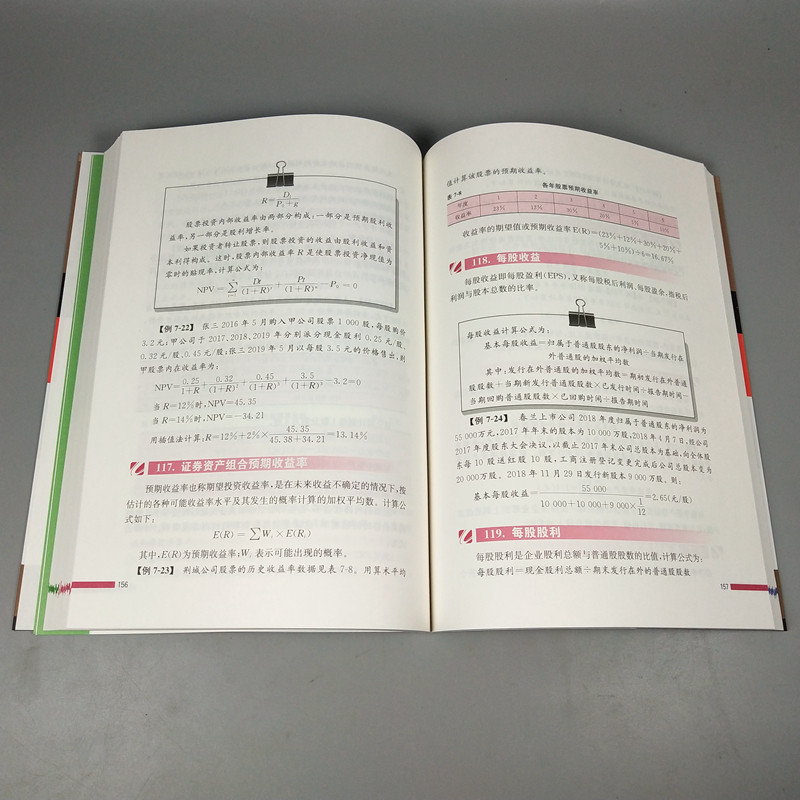 R=D₁/(P₀+g)
股票投资内部收益率由两部分构成:一部分是预期股利收
益率,另一部分是股利增长率。
如果投资者转让股票,则股票投资的收益由股利收益和资
本利得构成。这时,股票内部收益率R是使股票投资净现值为
零时的贴现率,计算公式为:
【例 7-22】 张三2016年5月购入甲公司股票1 000股,每股购价
3.2元;甲公司于2017、2018、2019年分别派分现金股利0.25元/股、
0.32元/股、0.45元/股;张三2019年5月以每股3.5元的价格售出,则
甲股票内在收益率为:
NPV=0.25/(1+R)+0.32/(1+R)²+0.45/(1+R)³+3.5/(1+R)³-3.2=0
当R=12%时,NPV=45.35
当R=14%时,NPV=-34.21
用插值法计算:R=12%+2%×45.35/(45.38+34.21)=13.14%
117. 证券资产组合预期收益率
预期收益率也称期望投资收益率,是在未来收益不确定的情况下,按
估计的各种可能收益率水平及其发生的概率计算的加权平均数。计算公
式如下:
E(R)=∑Wᵢ×E(Rᵢ)
其中,E(R)为预期收益率;Wᵢ表示可能出现的概率。
【例 7-23】 荆城公司股票的历史收益率数据见表7-8。用算术平均
156
值计算该股票的预期收益率。
表 7-8 各年股票预期收益率
年度 1 2 3 4 5 6
收益率 23% 12% 30% 20% 5% 10%
收益率的期望值或预期收益率E(R)=(23%+12%+30%+20%+
5%+10%)÷6=16.67%
118. 每股收益
每股收益即每股盈利(EPS),又称每股税后利润、每股盈余,指税后
利润与股本总数的比率。
每股收益计算公式为:
基本每股收益=归属于普通股股东的净利润÷当期发行在
外普通股的加权平均数
其中:发行在外普通股的加权平均数=期初发行在外普通
股股数+当期新发行普通股股数×已发行时间÷报告期时间-
当期回购普通股股数×已回购时间÷报告期时间
【例 7-24】 春兰上市公司2018年度归属于普通股股东的净利润为
55 000万元,2017年年末的股本为10 000万股,2018年4月7日,经公司
2017年度股东大会决议,以截止2017年末公司总股本为基础,向全体股
东每10股送红股10股,工商注册登记变更完成后公司总股本变为
20 000万股。2018年11月29日发行新股本9 000万股。则:
基本每股收益=55 000/(10 000+10 000+9 000×1/12)=2.65(元/股)
119. 每股股利
每股股利是企业股利总额与普通股股数的比值,计算公式为:
每股股利=现金股利总额÷期末发行在外的普通股股数
157